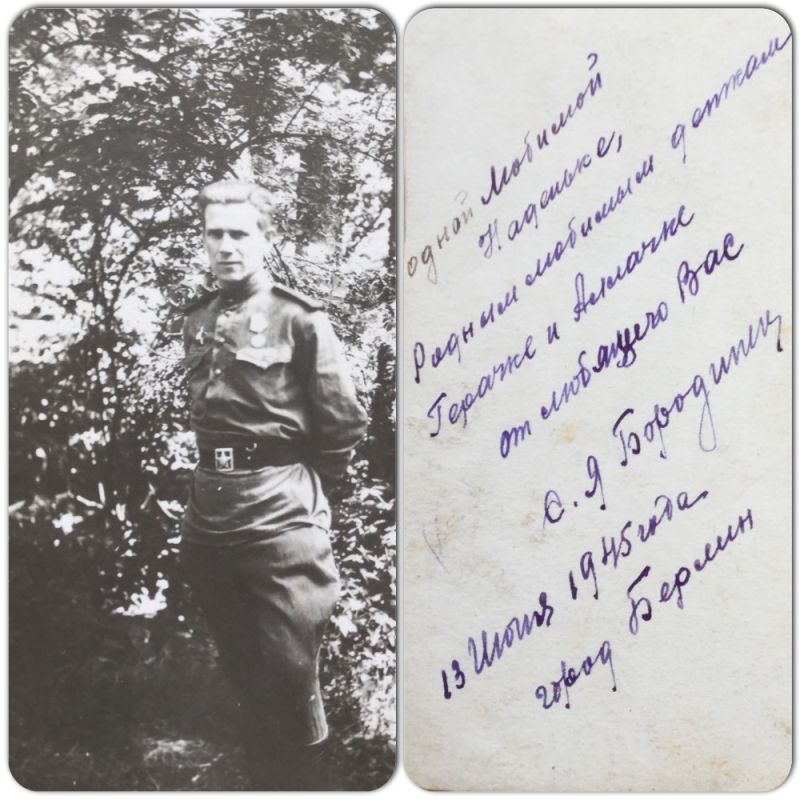 одной любимой
Наденьке,
Родным любимым деткам
Герачке и Аллачке
от любящего Вас
С. Я Бородинец
13 Июня 1945 года
город Берлин